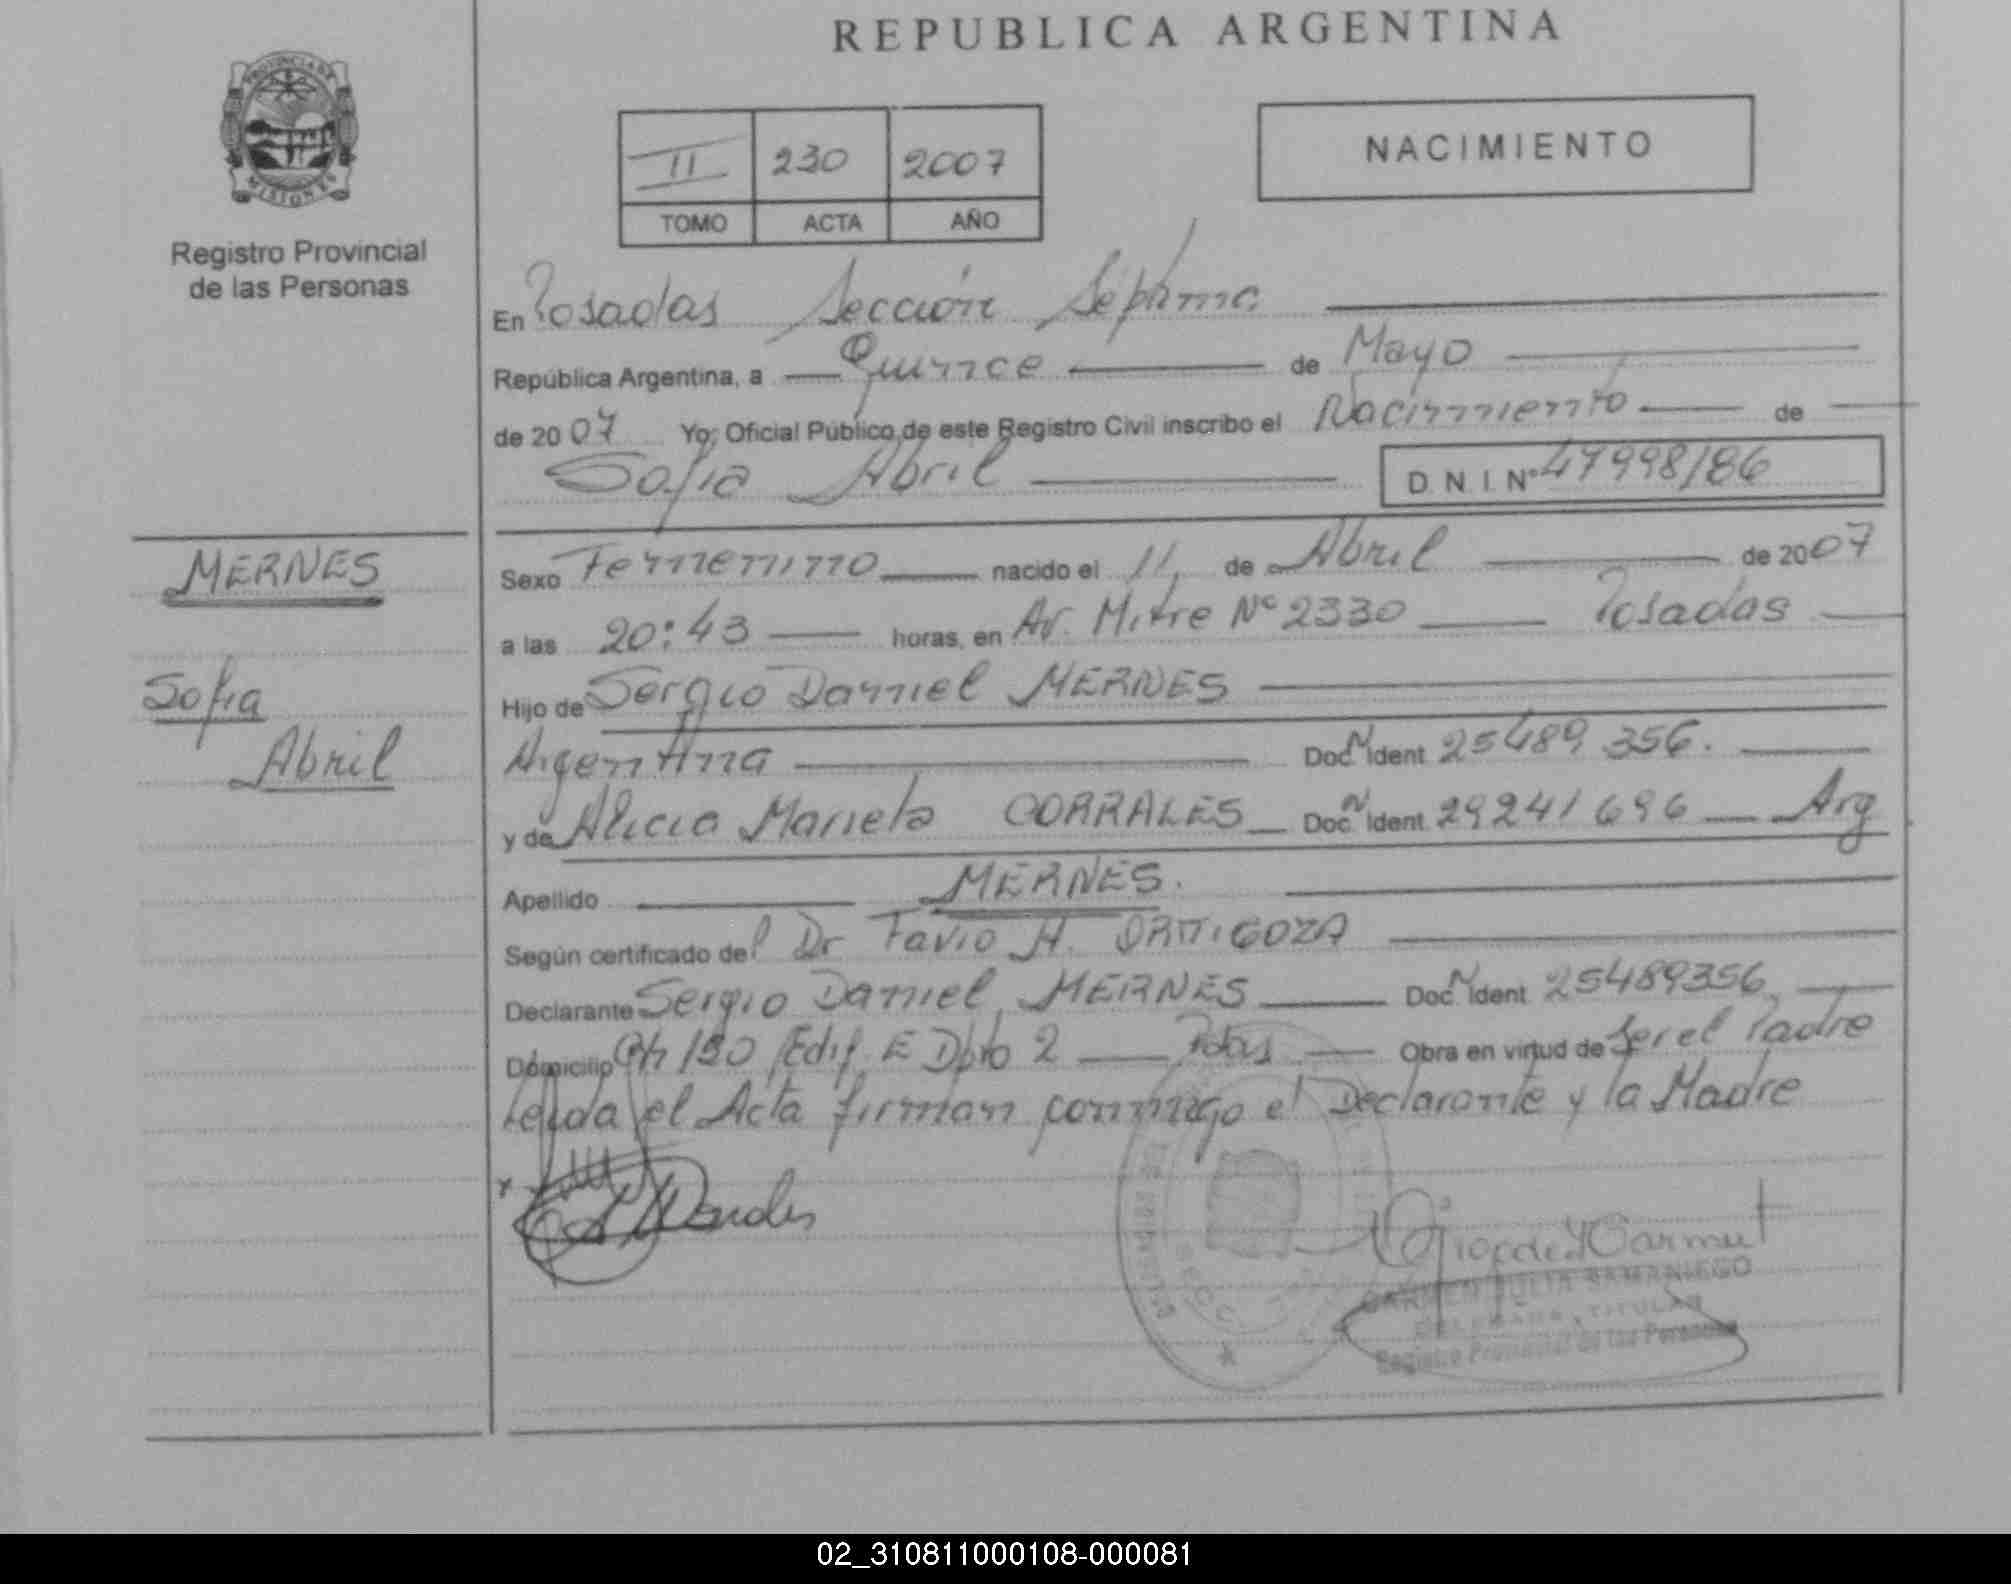 REPUBLICA ARGENTINA
PROVINCIA DE
MISIONES
Registro Provincial
de las Personas
II 230 2007
TOMO ACTA AÑO
NACIMIENTO
En Posadas Sección Séptima
República Argentina, a Quince de Mayo
de 2007 Yo, Oficial Público de este Registro Civil inscribo el Nacimiento de
Sofia Abril D.N.I. Nº 47998186
MERNES
Sofia
Abril
Sexo Femenino nacido el 11 de Abril de 2007
a las 20:43 horas, en Av. Mitre Nº 2330 Posadas
Hijo de Sergio Daniel MERNES
Argentina Doc. N Ident 25489 356.
y de Alicia Mariela CORRALES Doc. N Ident 29241696 Arg
Apellido MERNES.
Según certificado del Dr Favio H. ORTIGOZA
Declarante Sergio Daniel MERNES Doc. N Ident 25489356
Domicilio Ch 190 Edif. E Dpto 2 Pdas Obra en virtud de Ser el Padre
Leida el Acta firman conmigo el Declarante y la Madre
CARMEN JULIA SAMANIEGO
DELEGADA TITULAR
Registro Provincial de las Personas
02_310811000108-000081